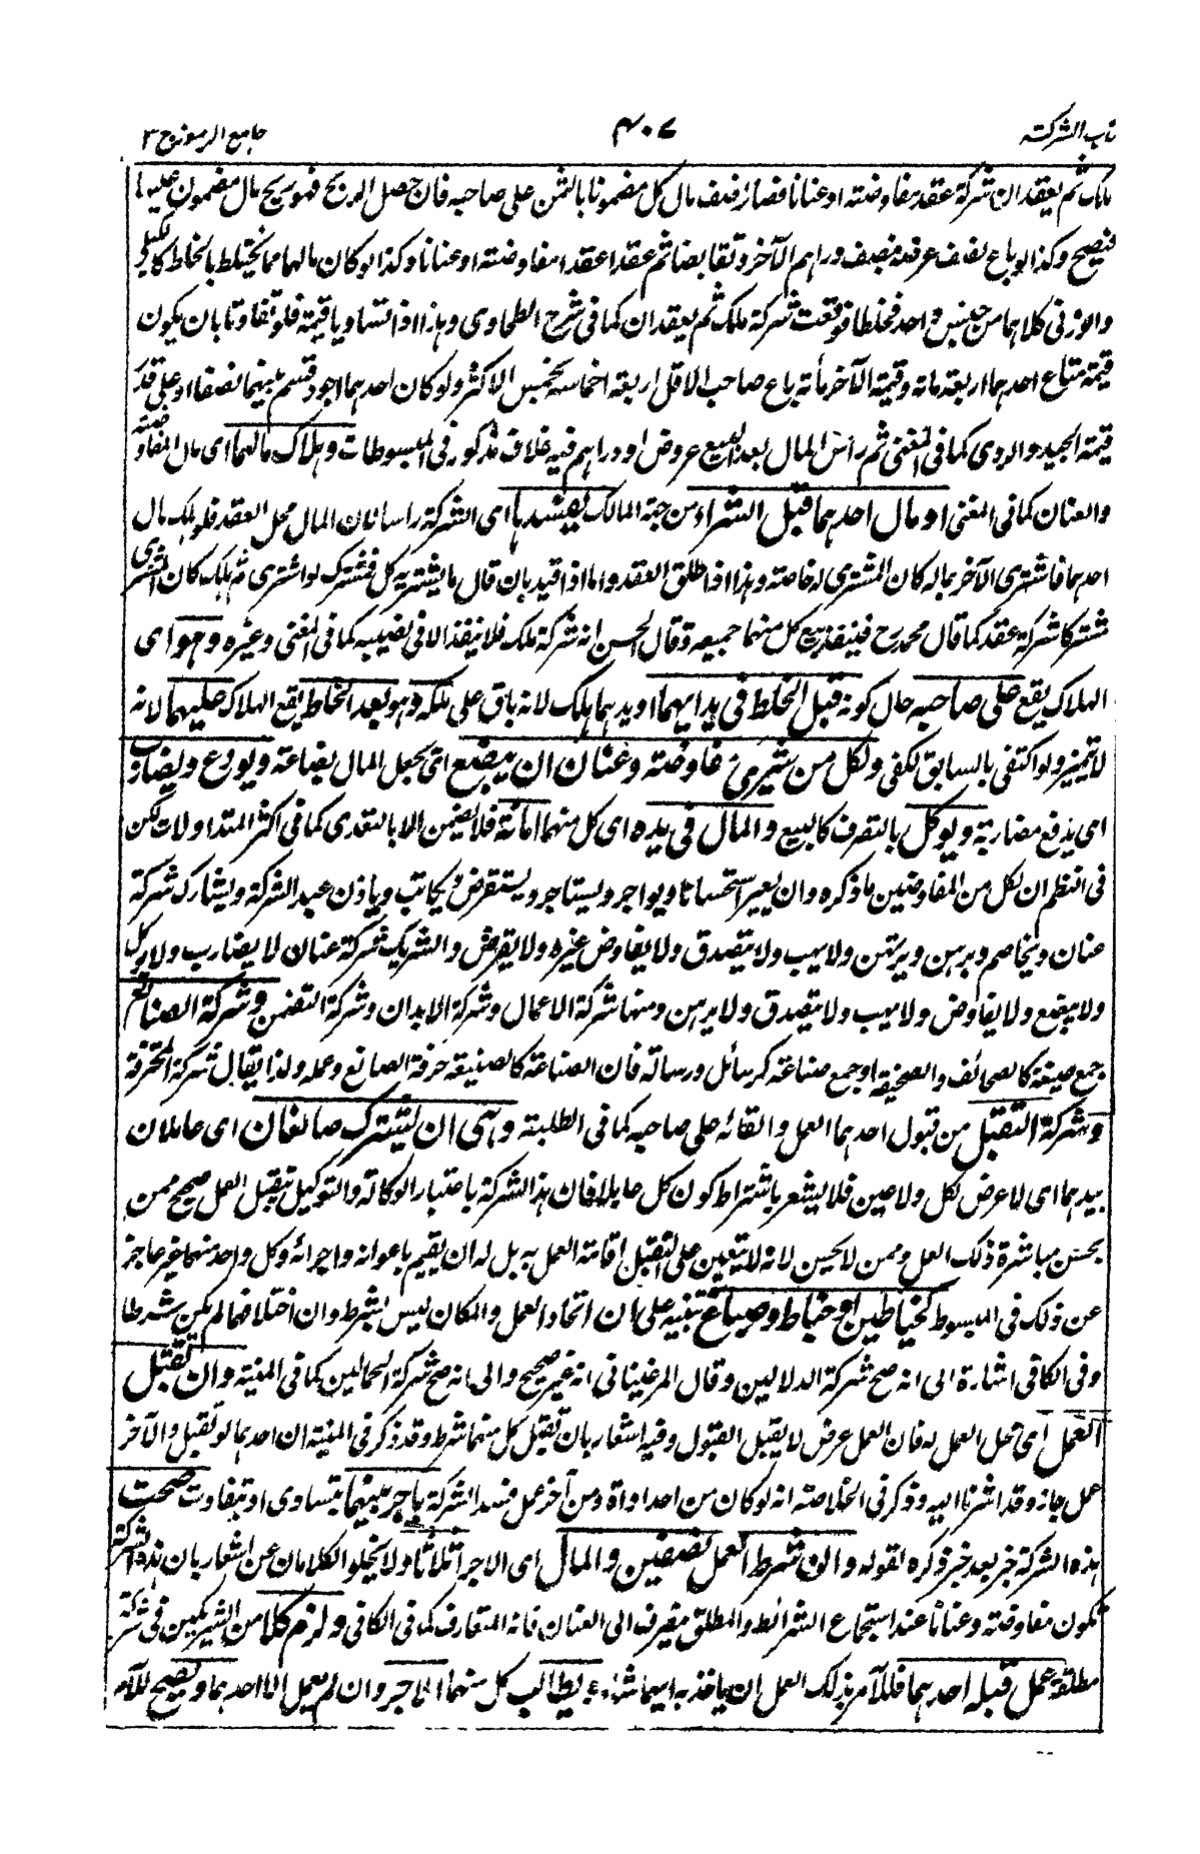 كتاب الشركة
٤٠٧
جامع الرموز ج ٣
ملك ثم يعقد ان شركة عقد مفاوضة او عنانا فصار نصف مال كل مضمونا بالثمن على صاحبه فان حصل الربح فهو ربح مال مضمون عليهما
فيصح وكذا لو باع نصف عرضه بنصف دراهم الآخر وتقابضا ثم عقدا عقدا مفاوضة او عنانا وكذا لو كان مالهما مما يختلط بالخلط كالكيلي
والوزنى كلاهما من جنس واحد فخلطا فوقعت شركة ملك ثم يعقدان كما فى شرح الطحاوى وهذا اذا تساويا قيمة فلو تفاوتا بان يكون
قيمة متاع احدهما اربعة مائة وقيمة الآخر مأته باع صاحب الاقل اربعة اخماسه بخمس الاكثر ولو كان احدهما اجود قسم بينهما نصفا او على قدر
قيمة الجيد والردى كما فى المغنى ثم رأس المال بعد البيع عروض او دراهم فيه خلاف مذكور فى المبسوطات وهلاك مالهما اى مال المفاوضة
والعنان كما فى المغنى او مال احدهما قبل الشراء من جهة المالك يفسدها اى الشركة راسا لان المال محل العقد فلو هلك مال
احدهما فاشترى الآخر بماله كان المشترى له خاصة وهذا اذا اطلق العقد واما اذا قيد بان قال ما يشتريه كل فمشترك لو اشترى ثم هلك كان المشترى
مشتركا شركة عقد كما قال محمد رح فينفذ بيع كل منهما جميعه وقال الحسن انه شركة ملك فلا ينفذ الا فى نصيبه كما فى المغنى وغيره وهو اى
الهلاك يقع على صاحبه حال كونه قبل الخلط فى يد ايهما او يدهما هلك لانه باق على ملكه وهو بعد الخلط يقع الهلاك عليهما لانه
لا يتميز ولو اكتفى بالسابق لكفى ولكل من شريكى مفاوضة وعنان ان يبضع اى يجعل المال بضاعة ويودع ويضارب
اى يدفع مضاربة ويوكل بالتصرف كالبيع والمال فى يده اى كل منهما امانة فلا يضمن الا بالتعدى كما فى اكثر المتداولات لكن
فى النظم ان لكل من المفاوضين ما ذكره وان يعير استحسانا ويواجر ويستاجر ويستقرض ويكاتب وياذن عبد الشركة ويشارك شركة
عنان ويخاصم ويرهن ويرتهن ولا يهب ولا يتصدق ولا يفاوض غيره ولا يقرض والشريك شركة عنان لا يضارب ولا يوكل
ولا يبضع ولا يفاوض ولا يهب ولا يتصدق ولا يرهن ومنها شركة الاعمال وشركة الابدان وشركة التضمن وشركة الصنائع
جمع صنيعة كالصحائف والصحيفة او جمع صناعة كرسائل ورسالة فان الصناعة كالصنيعة حرفة الصانع وعمله ولذا يقال شركة المحترفة
وشركة التقبل من قبول احدهما العمل والقائه على صاحبه كما فى الطلبة وهى ان يشترك صانعان اى عاملان
بيدهما اى لا عرض لكل ولا عين فلا يشعر باشتراط كون كل عاملا فان هذا الشركة باعتبار الوكالة والتوكيل بتقبل العمل صحيح ممن
يحسن مباشرة ذلك العمل وممن لا يحسن لانه لا يتعين على المتقبل اقامة العمل به بل له ان يقيم باعوانه واجرائه وكل واحد منهما غير عاجز
عن ذلك فى المبسوط كخياطين او خياط وصباغ تنبيه على ان اتحاد العمل والمكان ليس بشرط وان اختلافهما لم يكن شرطا
وفى الكافى اشارة الى انه صح شركة الدلالين وقال المرغينانى انه غير صحيح والى انه صح شركة الحمالين كما فى المنية وان تقبل
العمل اى محل العمل له فان العمل عرض لا يقبل القبول وفيه اشعار بان تقبل كل منهما شرط وقد ذكر فى المنية ان احدهما لو تقبل والآخر
عمل جاز وقد اشرنا اليه وذكر فى الخلاصة انه لو كان من احد اداة ومن آخر عمل فسد الشركة باجر بينهما بتساوى او بتفاوت صحت
هذه الشركة خبر بعد خبر ذكره لقوله وان شرط العمل نصفين والمال اى الاجر اثلاثا ولا يخلو الكلامان عن اشعار بان هذه الشركة
تكون مفاوضة وعنانا عند استجماع الشرائط والمطلق ينصرف الى العنان فانه المتعارف كما فى الكافى ولزم كلا من الشريكين فى شركة
مطلقة عمل قبله احدهما فللآمر بذلك العمل ان ياخذ به ايهما شاء ويطالب كل منهما الاجر وان لم يعمل الا احدهما ويصح للآمر